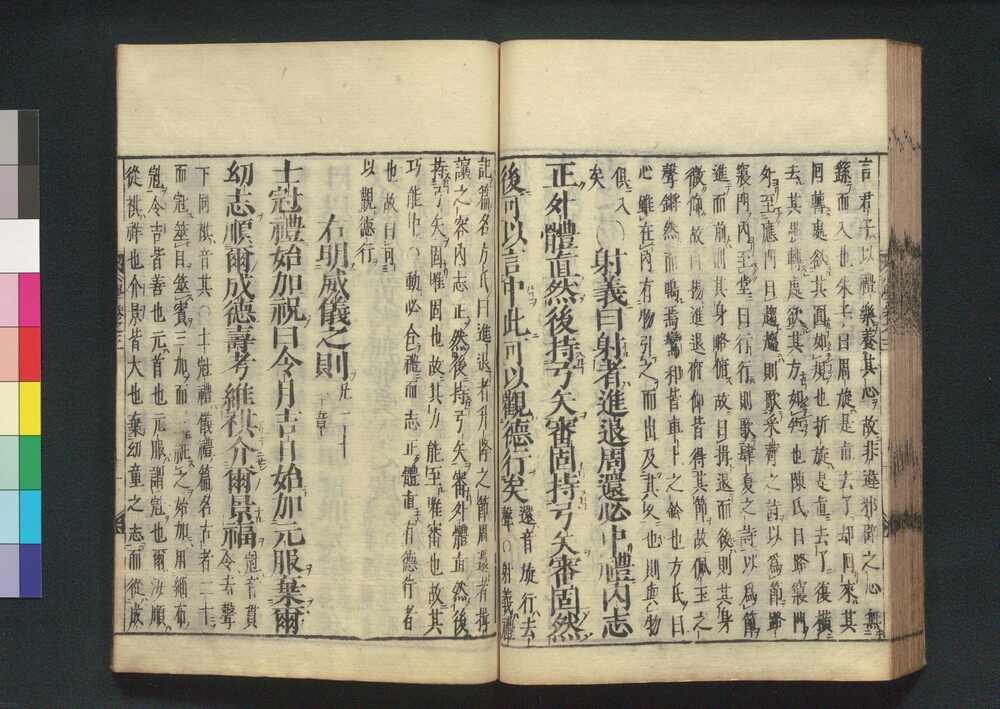 言君子以禮樂養其心故非邊邪僻之心無
繇而入也朱子曰周旋是直去了却回來其
回轉處欲其圓如規也折旋是直去了復橫
去其橫轉處欲其方如矩也陳氏曰路寢門
外至應門曰趨趨則歌采薺之詩以爲節路
寢門內至堂曰行行則歌肆夏之詩以爲節
進而前則其身略俯故曰揖退而後則其身
微仰故曰揚進退俯仰皆得其節故佩玉之
聲鏘然而鳴焉鸞和皆車上之鈴也方氏曰
心雖在內有物引之而出及其久也則與物
俱入〇
矣
射義曰射者進退周還必中禮內志
正外體直然後持弓矢審固持弓矢審固然
後可以言中此可以觀德行矣
還音旋行去
聲〇射義禮
記篇名方氏曰進退者升降之節周還者揖
讓之容內志正然後持弓矢審外體直然後
持弓矢固唯固也故其力能至唯審也故其
巧能中〇動必合禮而志正體直有德行者
也故曰可
以觀德行
右明威儀之則
凡二十
一章
士冠禮始加祝曰令月吉日始加元服棄爾
幼志順爾成德壽考維祺介爾景福
冠音貫
令去聲
下同祺音其〇士冠禮儀禮篇名古者二十
而冠筮日筮賓三加而三祝之始加用緇布
冠令吉皆善也元首也元服謂冠也爾汝順
從祺祥也介景皆大也棄幼童之志而從成